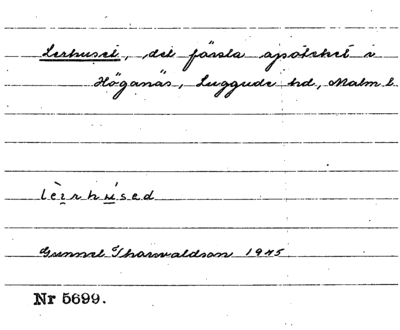 Lerhuset, det första apoteket i
Höganäs, Luggude hd, Malm. l.
lèrhúsed
Gunnel Thorvaldson 1945.
Nr 5699.